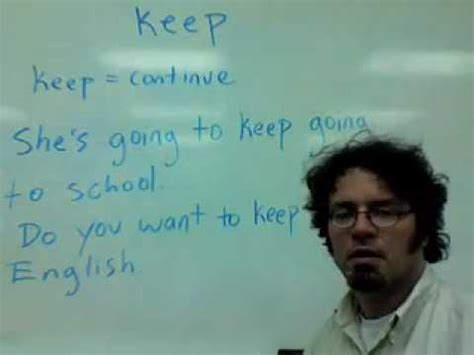 Keep
Keep = continue
She's going to keep going
to school.
Do you want to keep
English.